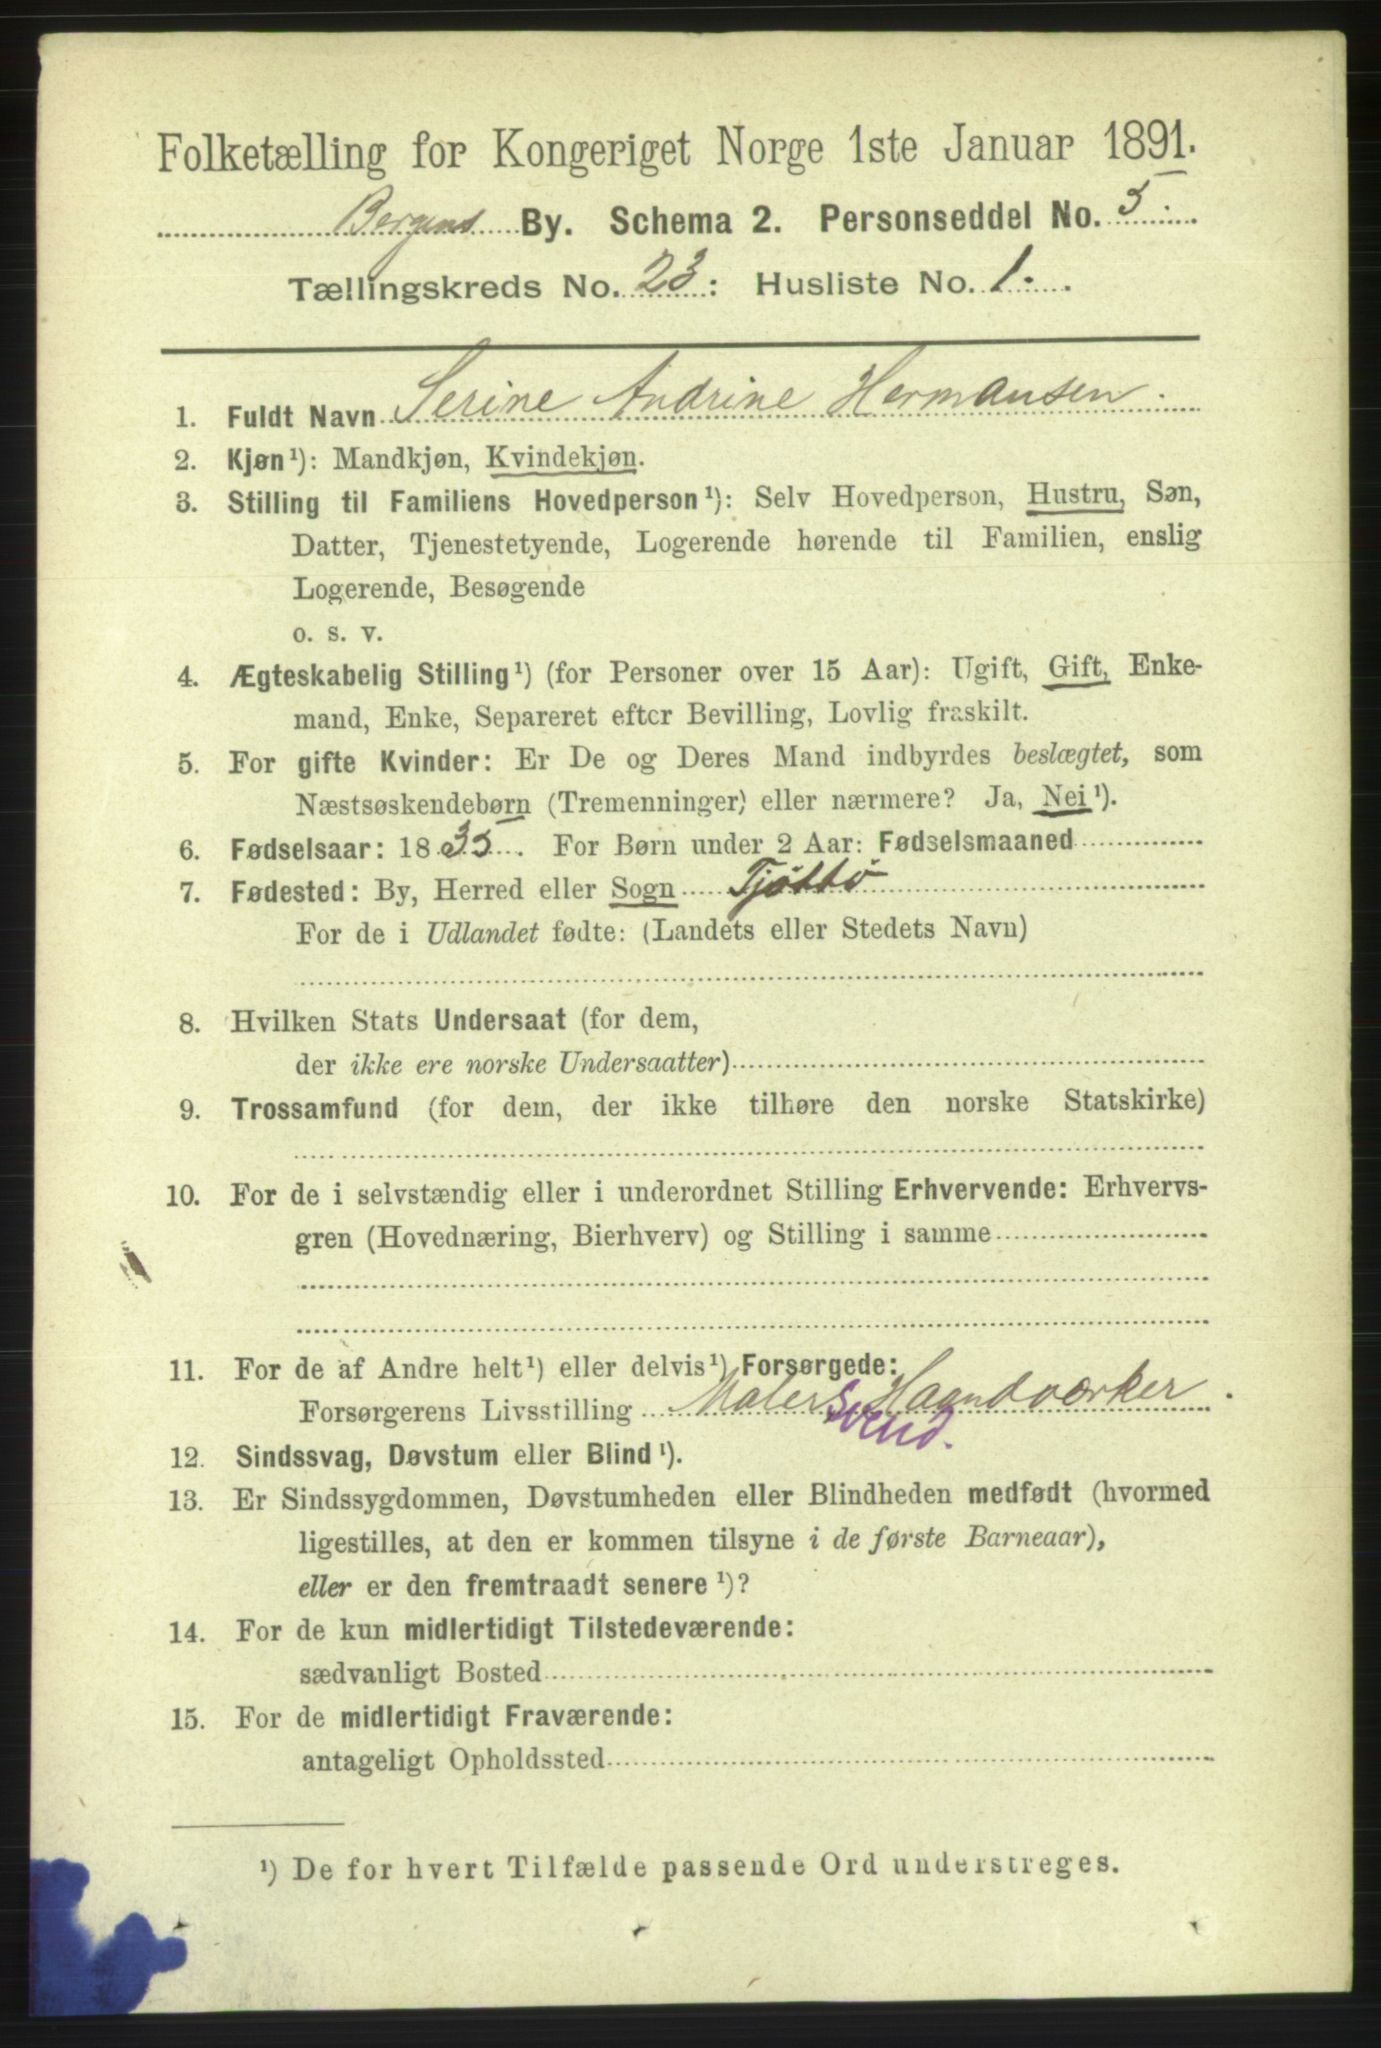 Folketælling for Kongeriget Norge 1ste Januar 1891.
Bergens By. Schema 2. Personseddel No. 5.
Tællingskreds No. 23: Husliste No. 1.
1. Fuldt Navn Serine Andrine Hermansen.
2. Kjøn¹): Mandkjøn, Kvindekjøn.
3. Stilling til Familiens Hovedperson¹): Selv Hovedperson, Hustru, Søn,
Datter, Tjenestetyende, Logerende hørende til Familien, enslig
Logerende, Besøgende
o. s. v.
4. Ægteskabelig Stilling¹) (for Personer over 15 Aar): Ugift, Gift, Enke-
mand, Enke, Separeret efter Bevilling, Lovlig fraskilt.
5. For gifte Kvinder: Er De og Deres Mand indbyrdes beslægtet, som
Næstsøskendebørn (Tremenninger) eller nærmere? Ja, Nei¹).
6. Fødselsaar: 1835. For Børn under 2 Aar: Fødselsmaaned
7. Fødested: By, Herred eller Sogn Tjøttø
For de i Udlandet fødte: (Landets eller Stedets Navn)
8. Hvilken Stats Undersaat (for dem,
der ikke ere norske Undersaatter)
9. Trossamfund (for dem, der ikke tilhøre den norske Statskirke)
10. For de i selvstændig eller i underordnet Stilling Erhvervende: Erhvervs-
gren (Hovednæring, Bierhverv) og Stilling i samme
11. For de af Andre helt¹) eller delvis¹) Forsørgede:
Forsørgerens Livsstilling Maler Haandværker.
Svend.
12. Sindssvag, Døvstum eller Blind¹).
13. Er Sindssygdommen, Døvstumheden eller Blindheden medfødt (hvormed
ligestilles, at den er kommen tilsyne i de første Barneaar),
eller er den fremtraadt senere¹)?
14. For de kun midlertidigt Tilstedeværende:
sædvanligt Bosted
15. For de midlertidigt Fraværende:
antageligt Opholdssted
¹) De for hvert Tilfælde passende Ord understreges.